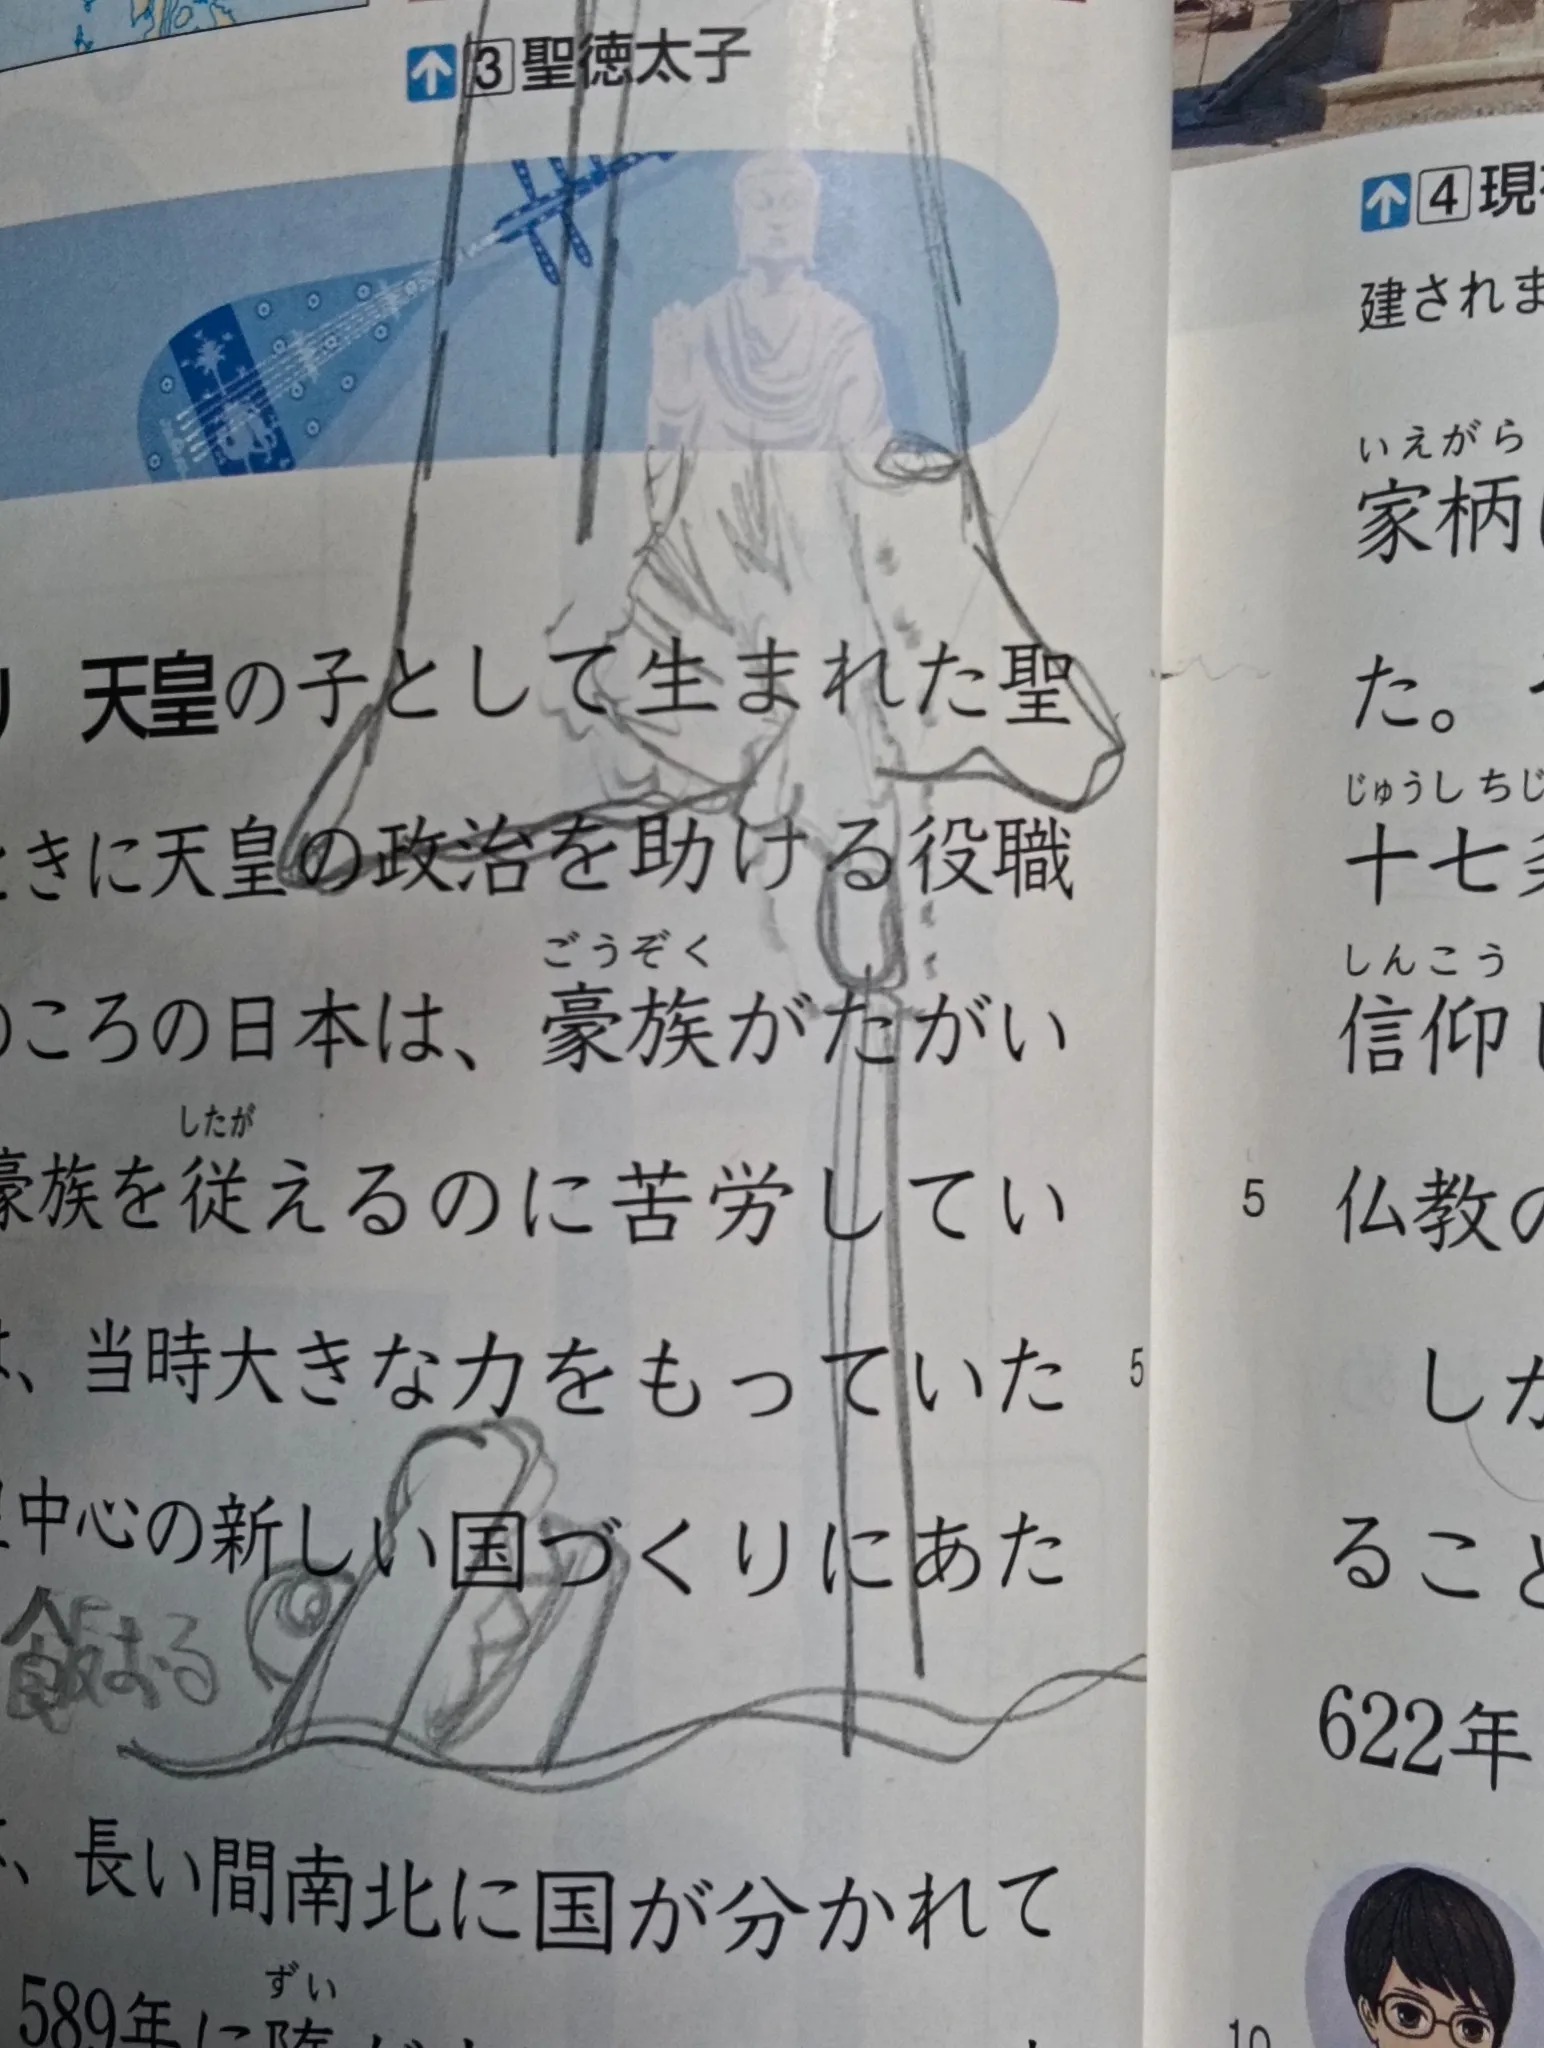 3 聖徳太子
天皇の子として生まれた聖
きに天皇の政治を助ける役職
ころの日本は、豪族がたがい
ごうぞく
豪族を従えるのに苦労してい
したが
、当時大きな力をもっていた
5
中心の新しい国づくりにあた
飯おる
、長い間南北に国が分かれて
589年に隋が
ずい
4 現
建されま
いえがら
家柄
た。
じゅうしちじ
十七
しんこう
信仰し
5
仏教の
しか
ること
622年
10